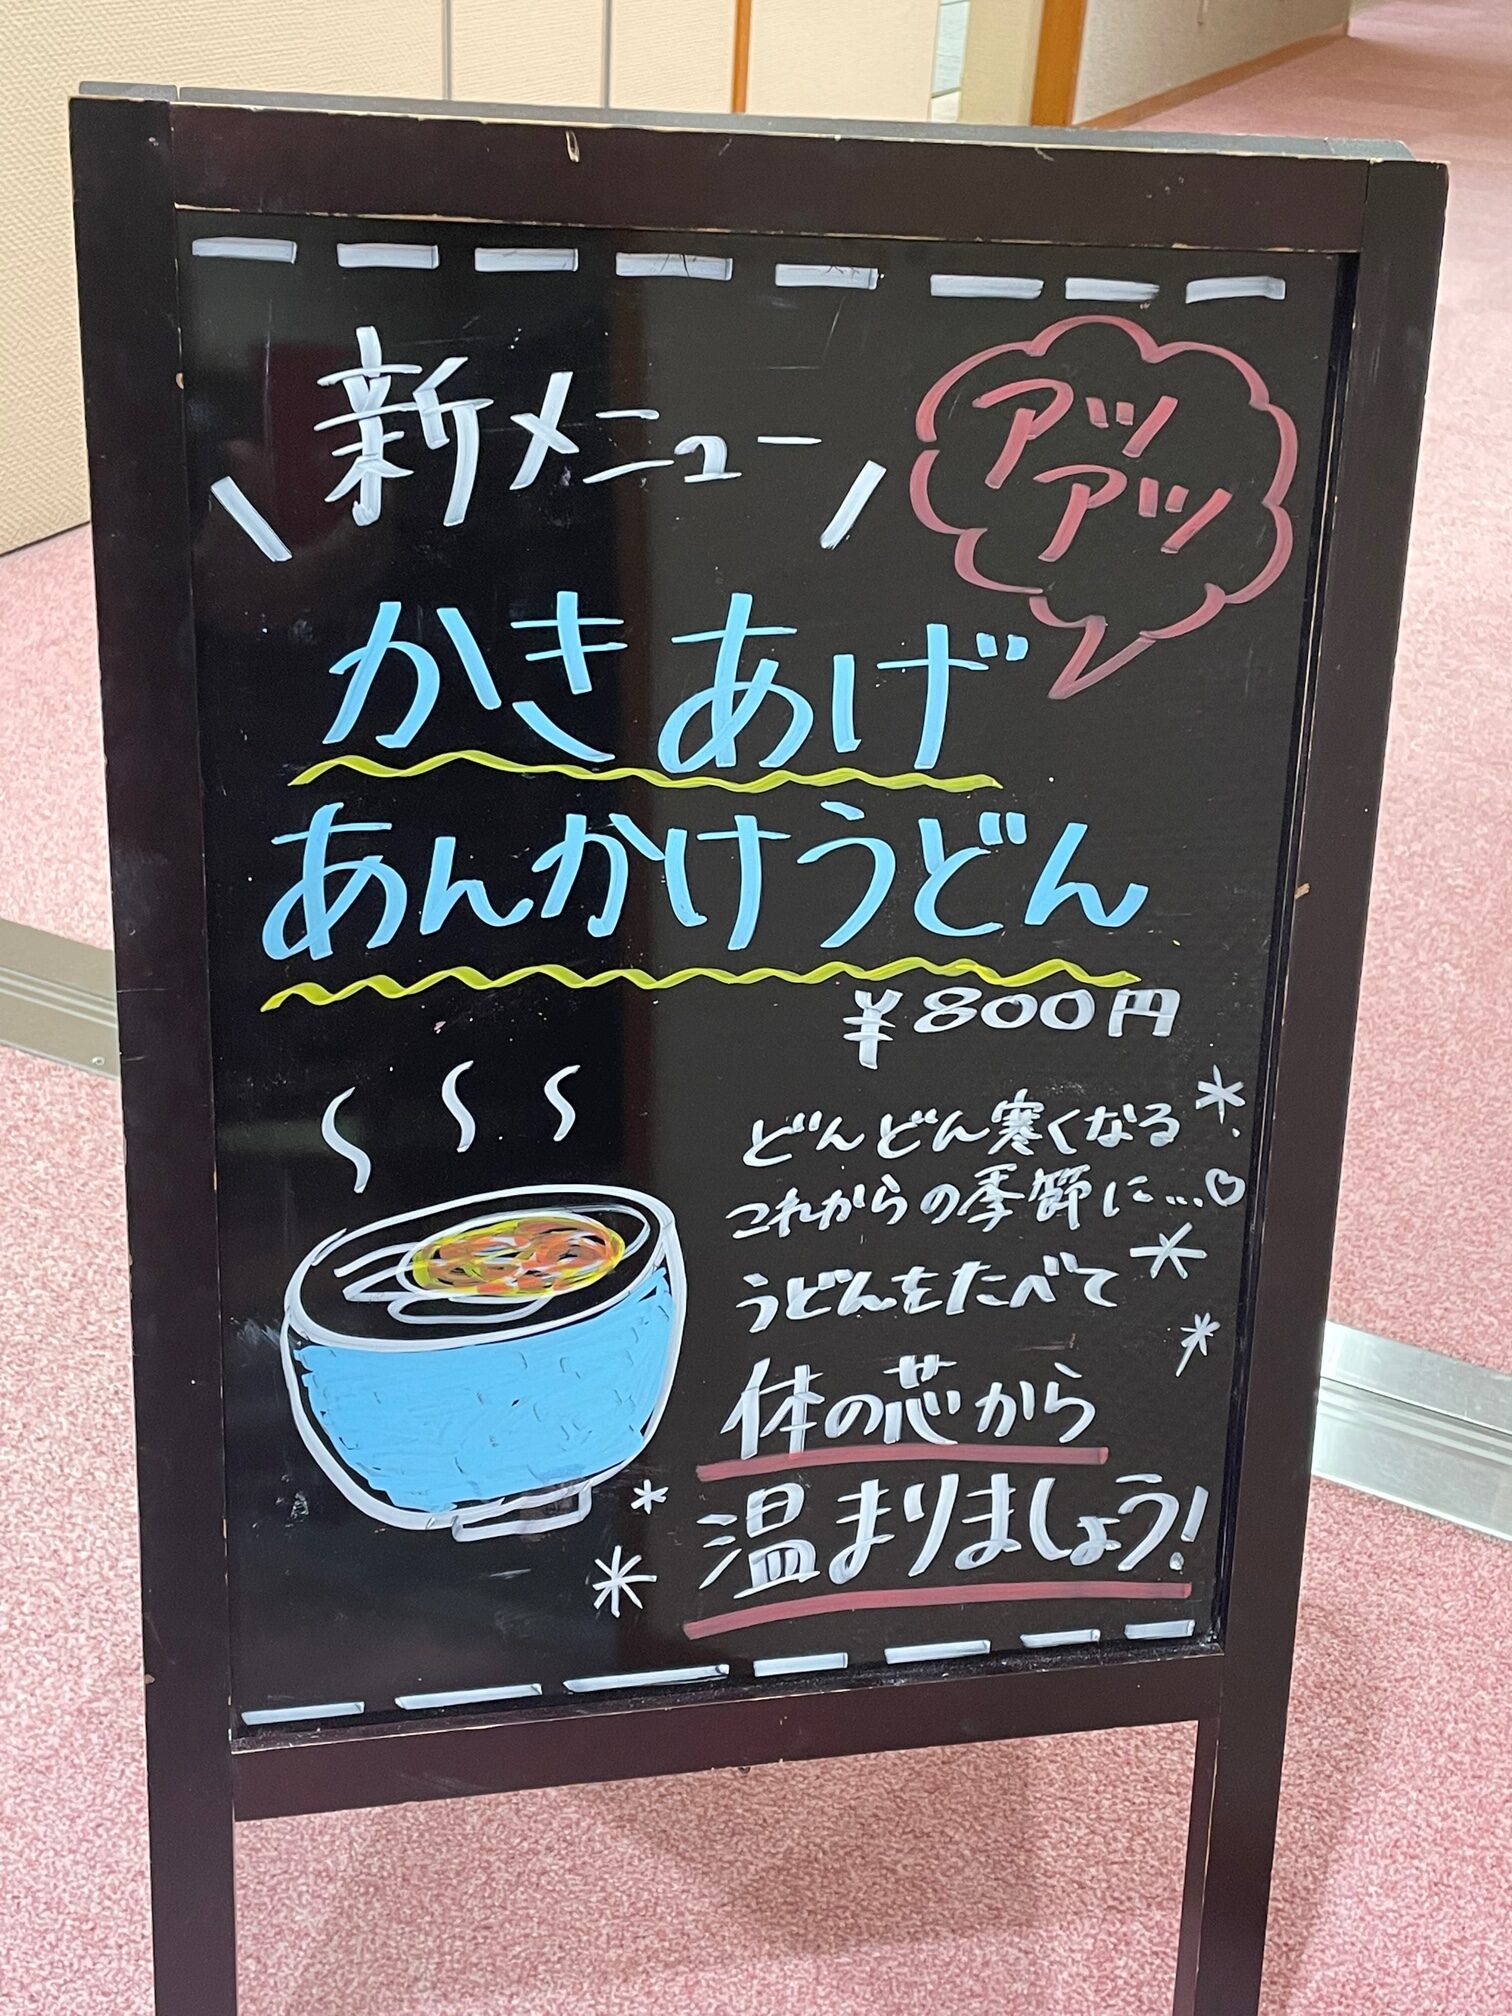 新メニュー
アツ
アツ
かきあげ
あんかけうどん
¥800円
どんどん寒くなる
これからの季節に...♡
うどんをたべて
体の芯から
温まりましょう!